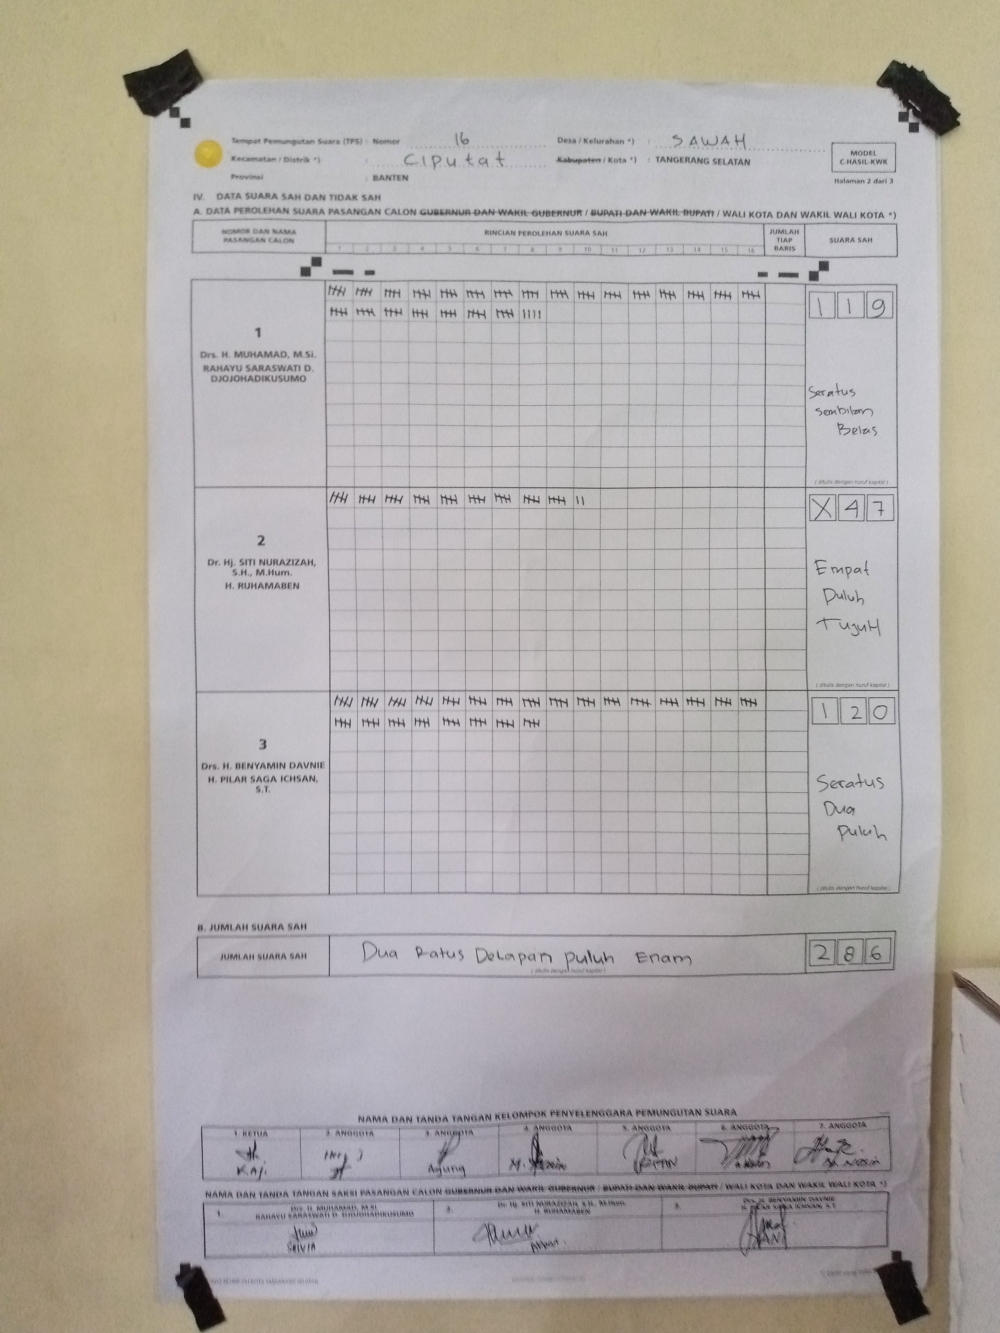 Tempat Pemungutan Suara (TPS) : Nomor 16 Desa / Kelurahan *) : SAWAH
Kecamatan / Distrik *) : Ciputat Kabupaten / Kota *) : TANGERANG SELATAN
Provinsi : BANTEN
MODEL
C.HASIL-KWK
Halaman 2 dari 3
IV. DATA SUARA SAH DAN TIDAK SAH
A. DATA PEROLEHAN SUARA PASANGAN CALON GUBERNUR DAN WAKIL GUBERNUR / BUPATI DAN WAKIL BUPATI / WALI KOTA DAN WAKIL WALI KOTA *)
NOMOR DAN NAMA
PASANGAN CALON
RINCIAN PEROLEHAN SUARA SAH
1 2 3 4 5 6 7 8 9 10 11 12 13 14 15 16
JUMLAH
TIAP
BARIS
SUARA SAH
1
Drs. H. MUHAMAD, M.Si.
RAHAYU SARASWATI D.
DJOJOHADIKUSUMO
119
Seratus
Sembilan
Belas
(ditulis dengan huruf kapital)
2
Dr. Hj. SITI NURAZIZAH,
S.H., M.Hum.
H. RUHAMABEN
X47
Empat
Puluh
TujuH
(ditulis dengan huruf kapital)
3
Drs. H. BENYAMIN DAVNIE
H. PILAR SAGA ICHSAN,
S.T.
120
Seratus
Dua
Puluh
(ditulis dengan huruf kapital)
B. JUMLAH SUARA SAH
JUMLAH SUARA SAH
Dua Ratus Delapan Puluh Enam
(ditulis dengan huruf kapital)
286
NAMA DAN TANDA TANGAN KELOMPOK PENYELENGGARA PEMUNGUTAN SUARA
1. KETUA 2. ANGGOTA 3. ANGGOTA 4. ANGGOTA 5. ANGGOTA 6. ANGGOTA 7. ANGGOTA
Agung
NAMA DAN TANDA TANGAN SAKSI PASANGAN CALON GUBERNUR DAN WAKIL GUBERNUR / BUPATI DAN WAKIL BUPATI / WALI KOTA DAN WAKIL WALI KOTA *)
1. Drs. H. MUHAMAD, M.Si.
RAHAYU SARASWATI D. DJOJOHADIKUSUMO
2. Dr. Hj. SITI NURAZIZAH, S.H., M.Hum.
H. RUHAMABEN
3. Drs. H. BENYAMIN DAVNIE
H. PILAR SAGA ICHSAN, S.T.
SILVIA